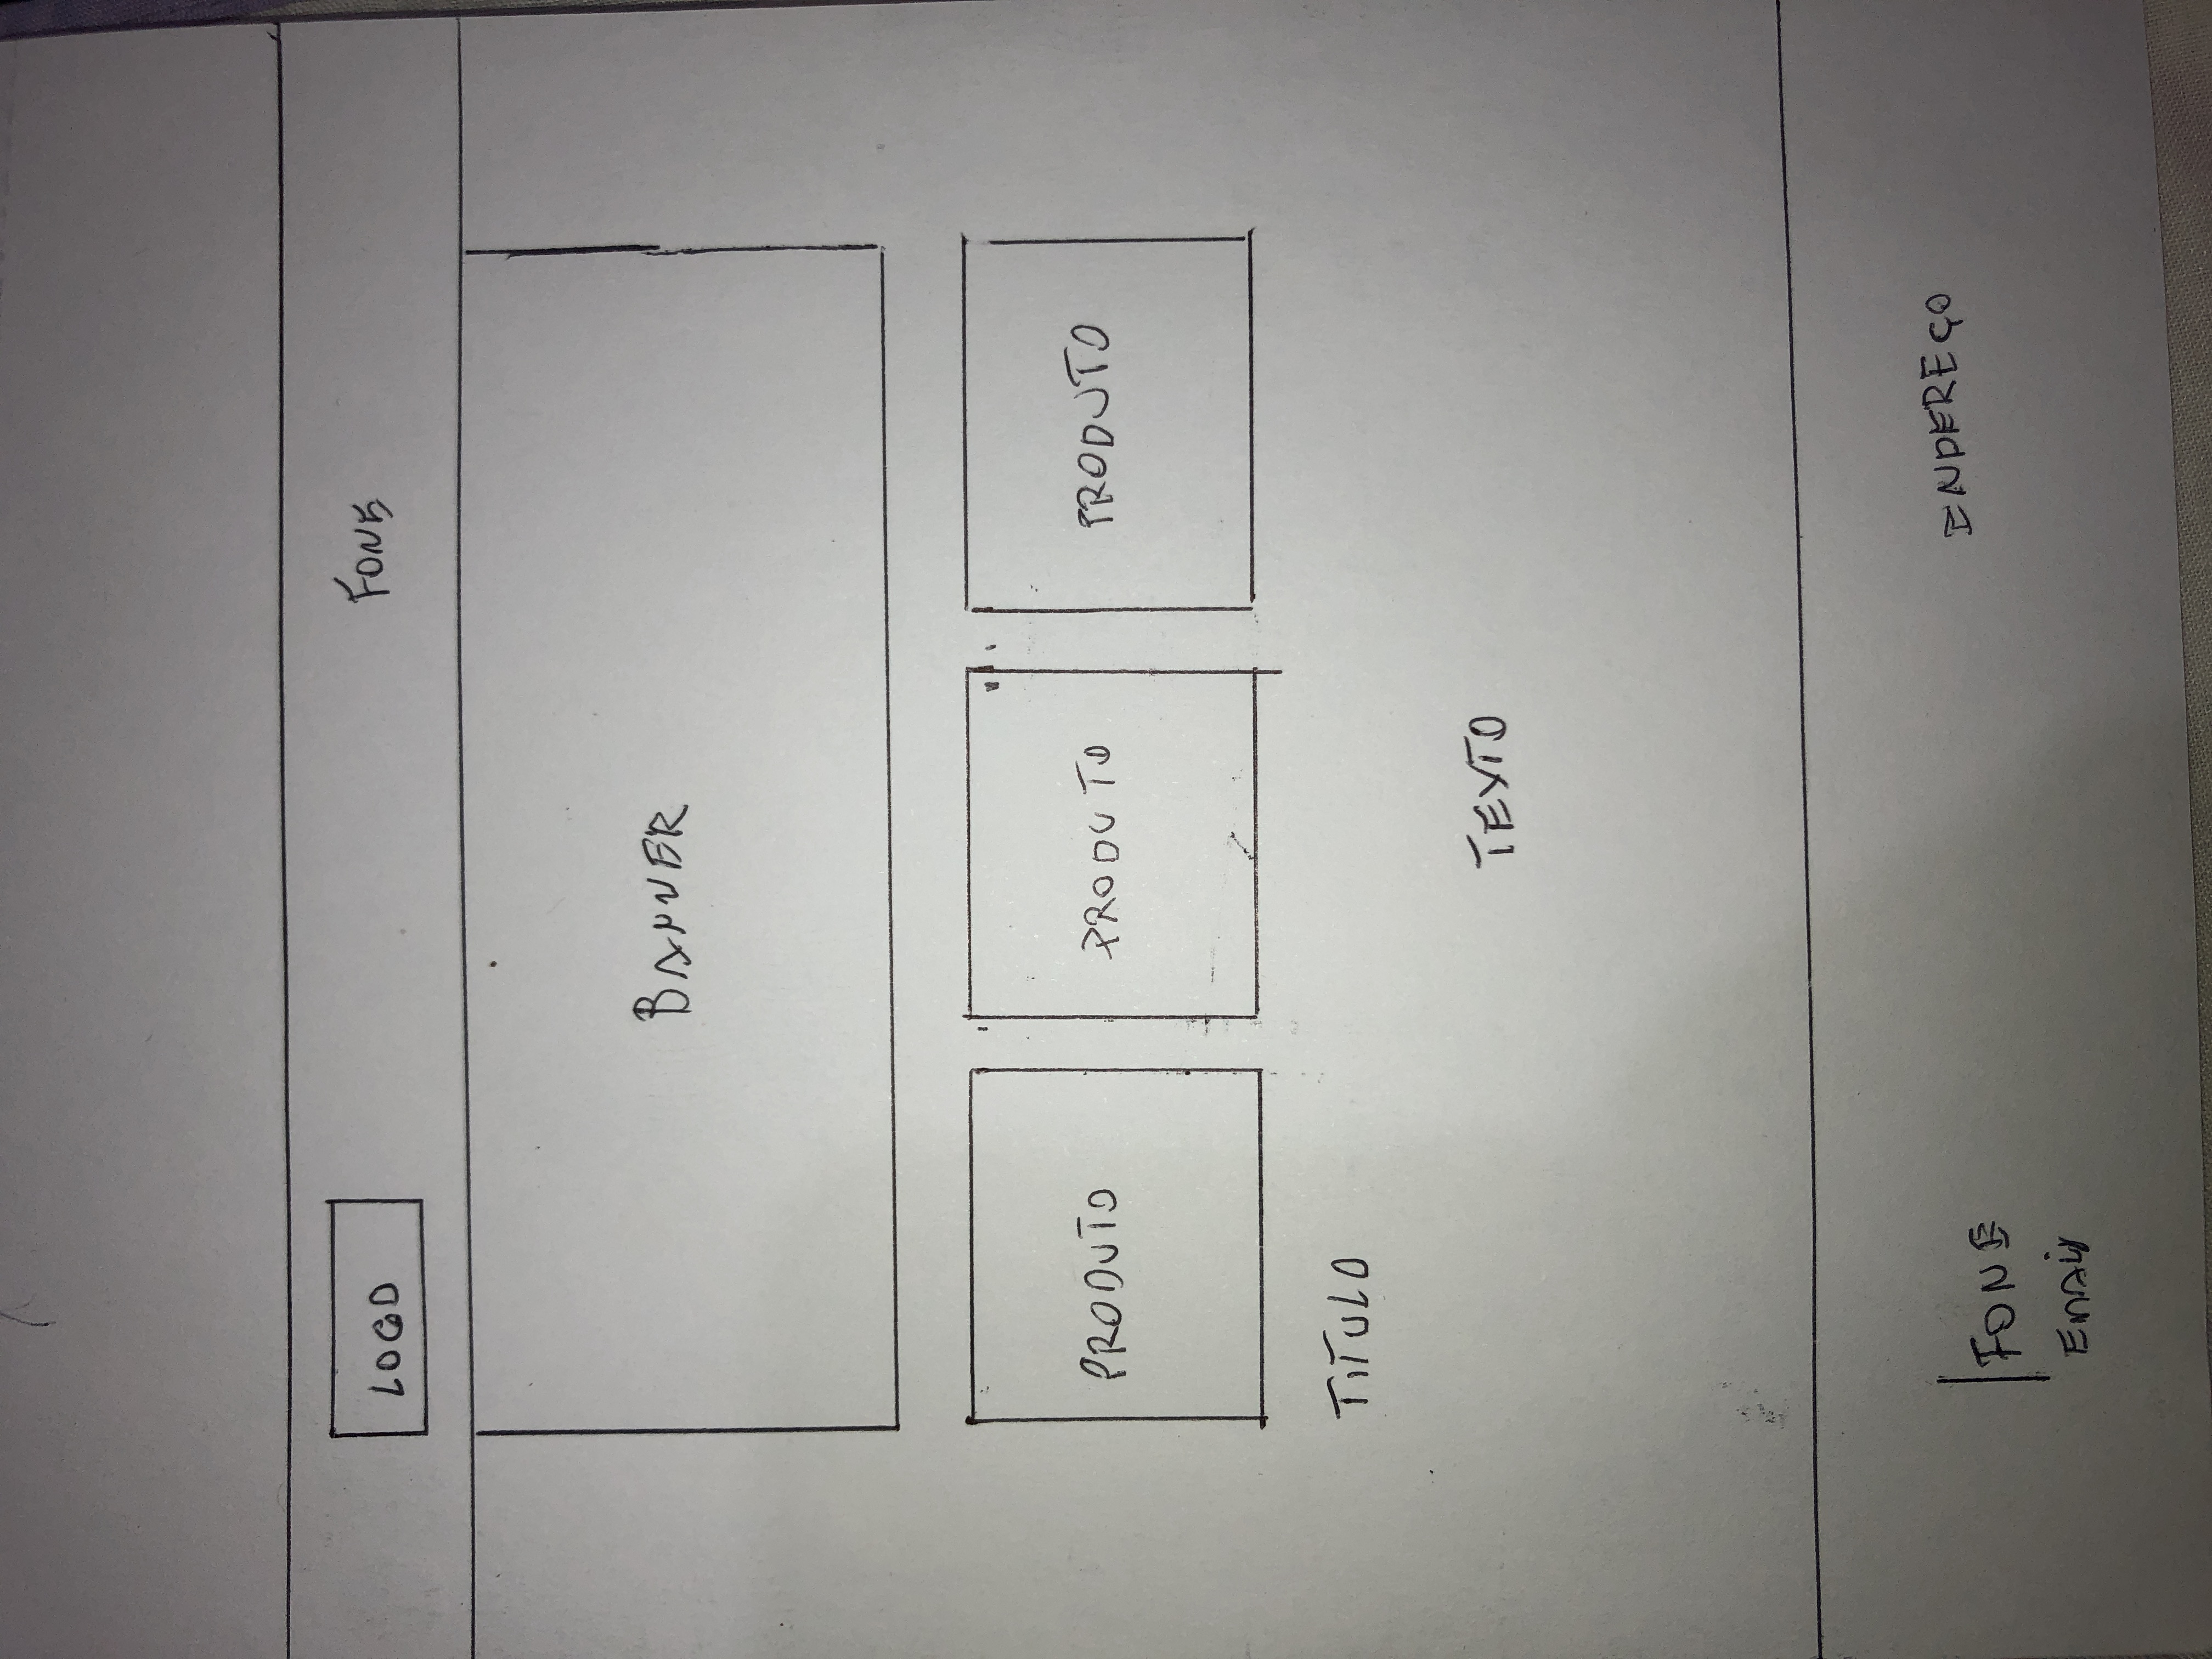 LOGO
FONE
BANNER
PRODUTO
PRODUTO
PRODUTO
TITULO
TEXTO
FONE
EMAIL
ENDEREÇO